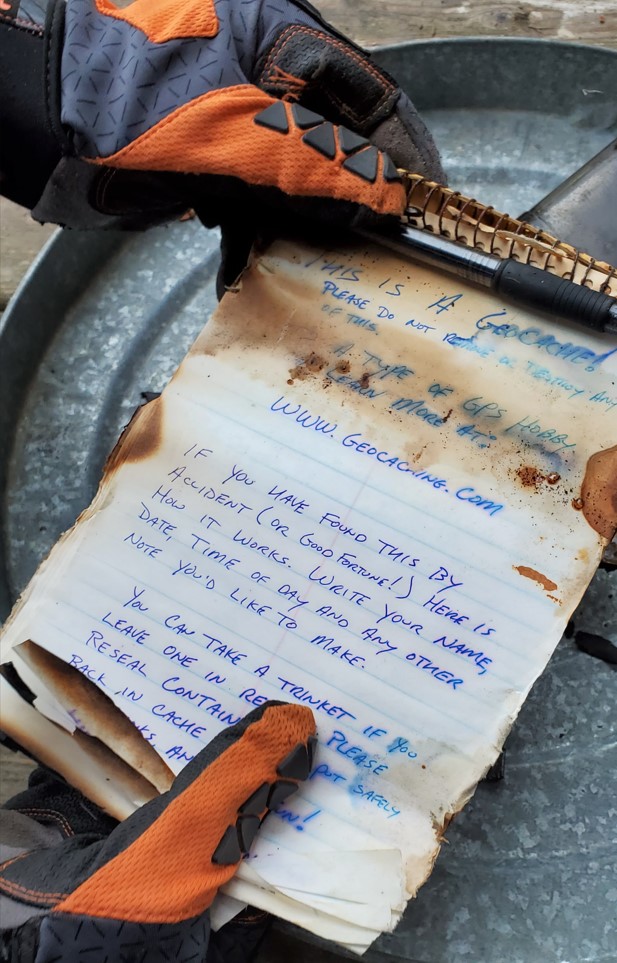 THIS IS A GEOCACHE!
PLEASE DO NOT REMOVE OR DESTROY ANY
OF THIS.
A TYPE OF GPS HOBBY
LEARN MORE AT:
WWW.GEOCACHING.COM
IF YOU HAVE FOUND THIS BY
ACCIDENT (OR GOOD FORTUNE!) HERE IS
HOW IT WORKS. WRITE YOUR NAME,
DATE, TIME OF DAY AND ANY OTHER
NOTE YOU'D LIKE TO MAKE.
YOU CAN TAKE A TRINKET IF YOU
LEAVE ONE IN PLEASE
RESEAL PUT SAFELY
BACK IN CACHE